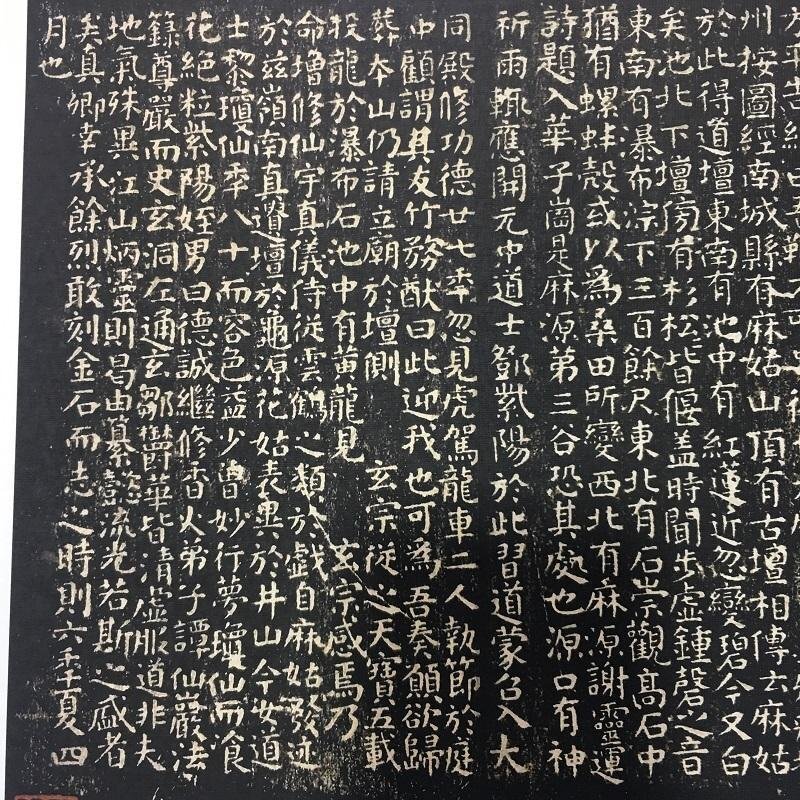 州按圖經南城縣有麻姑山頂有古壇相傳云麻姑
於此得道壇東南有池中有紅蓮近忽變碧今又白
矣池北下壇傍有杉松皆偃盖時聞步虛鍾磬之音
東南有瀑布淙下三百餘尺東北有石崇觀高石中
猶有螺蚌殼或以爲桑田所變西北有麻源謝靈運
詩題入華子崗是麻源第三谷恐其處也源口有神
祈雨輒應開元中道士鄧紫陽於此習道蒙召入大
同殿修功德廿七年忽見虎駕龍車二人執節於庭
中顧謂其友竹務猷曰此迎我也可爲吾奏願欲歸
葬本山仍請立廟於壇側 玄宗從之天寶五載
投龍於瀑布石池中有黃龍見 玄宗感焉乃
命增修仙宇真儀侍從雲鶴之類於戲自麻姑發迹
於茲嶺南真遺壇於龜源花姑表異於井山今女道
士黎瓊仙年八十而容色益少曾妙行夢瓊仙而飡
花絕粒紫陽姪男曰德誠繼修香火弟子譚仙巖法
籙尊嚴而史玄洞左通玄鄒鬱華皆清虛服道非夫
地氣殊異江山炳靈則曷由纂懿流光若斯之盛者
矣真卿幸承餘烈敢刻金石而志之時則六年夏四
月也